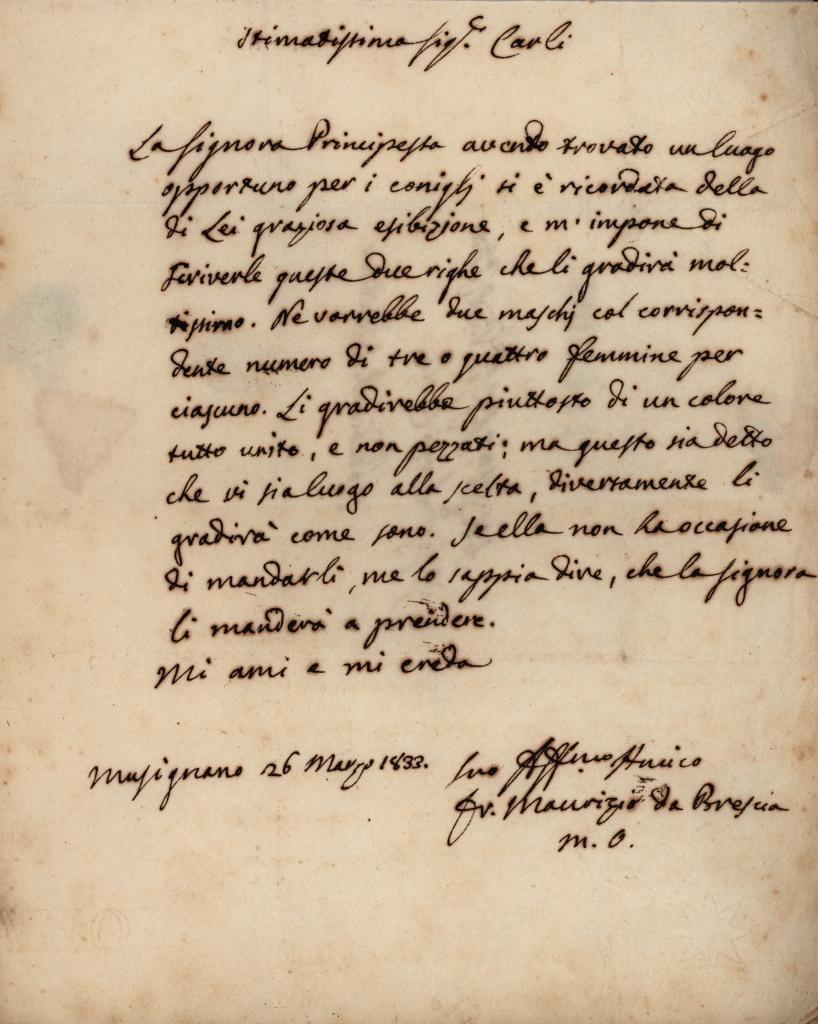 Stimatissimo Sigr. Carli
La Signora Principessa avendo trovato un luogo
opportuno per i conigli si è ricordata della
di Lei graziosa esibizione, e m' impone di
scriverle queste due righe che li gradirà mol=
tissimo. Ne vorrebbe due maschj col corrispon=
dente numero di tre o quattro femmine per
ciascuno. Li gradirebbe piuttosto di un colore
tutto unito, e non pezzati; ma questo sia detto
che vi sia luogo alla scelta, diversamente li
gradirà come sono. Se ella non ha occasione
di mandarli, me lo sappia dire, che la Signora
li manderà a prendere.
Mi ami e mi creda
Musignano 26 Marzo 1833.
Suo Affmo Amico
Fr. Maurizio da Brescia
m. O.